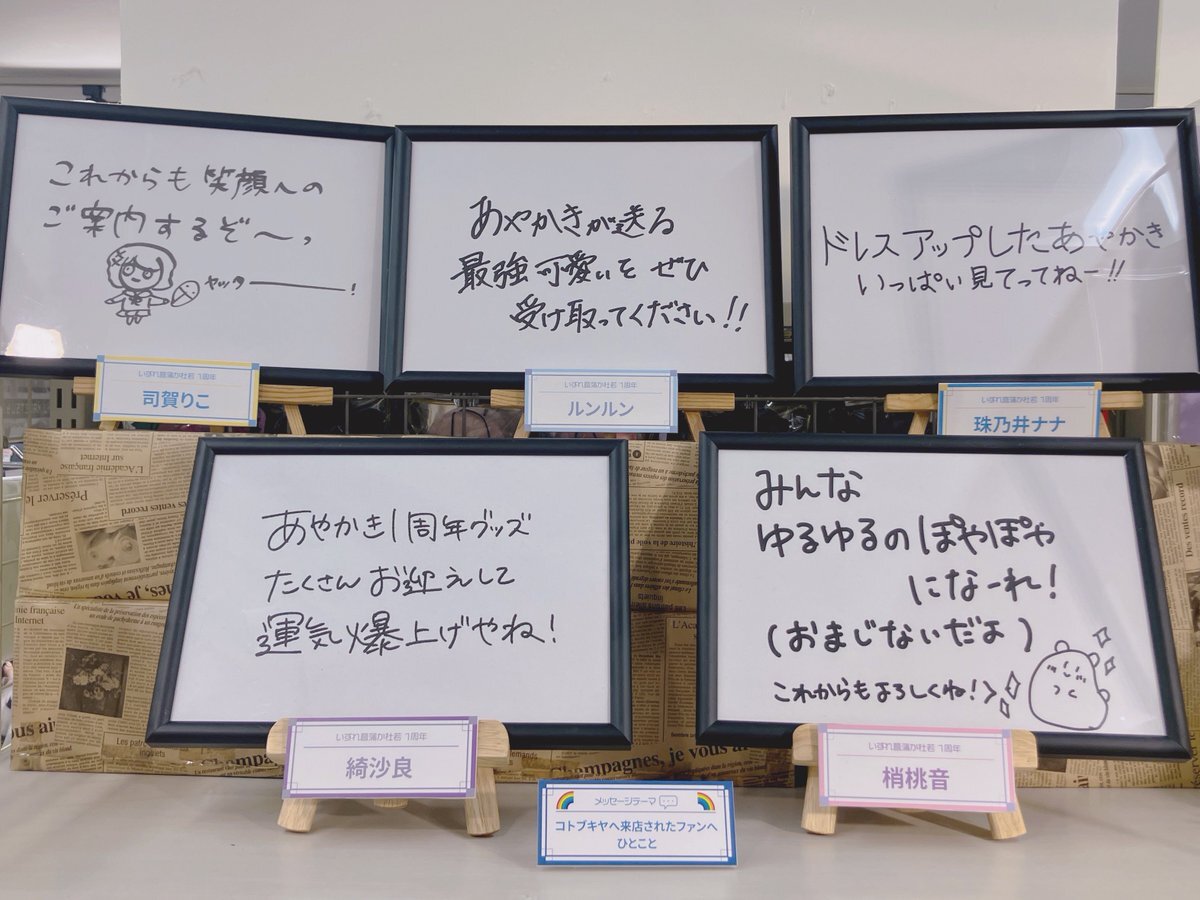 これからも笑顔への
ご案内するぞ〜っ
ヤッター!
いずれ菖蒲か杜若 1周年
司賀りこ
あやかきが送る
最強可愛いを ぜひ
受け取ってください!!
いずれ菖蒲か杜若 1周年
ルンルン
ドレスアップしたあやかき
いっぱい見てってねー!!
いずれ菖蒲か杜若 1周年
珠乃井ナナ
あやかき1周年グッズ
たくさんお迎えして
運気爆上げやね!
いずれ菖蒲か杜若 1周年
綺沙良
みんな
ゆるゆるのぽやぽや
になーれ!
(おまじないだよ)
これからもよろしくね!
いずれ菖蒲か杜若 1周年
梢桃音
メッセージテーマ
コトブキヤへ来店されたファンへ
ひとこと
L'Académie française
sur Internet
Préserver le
ventes record